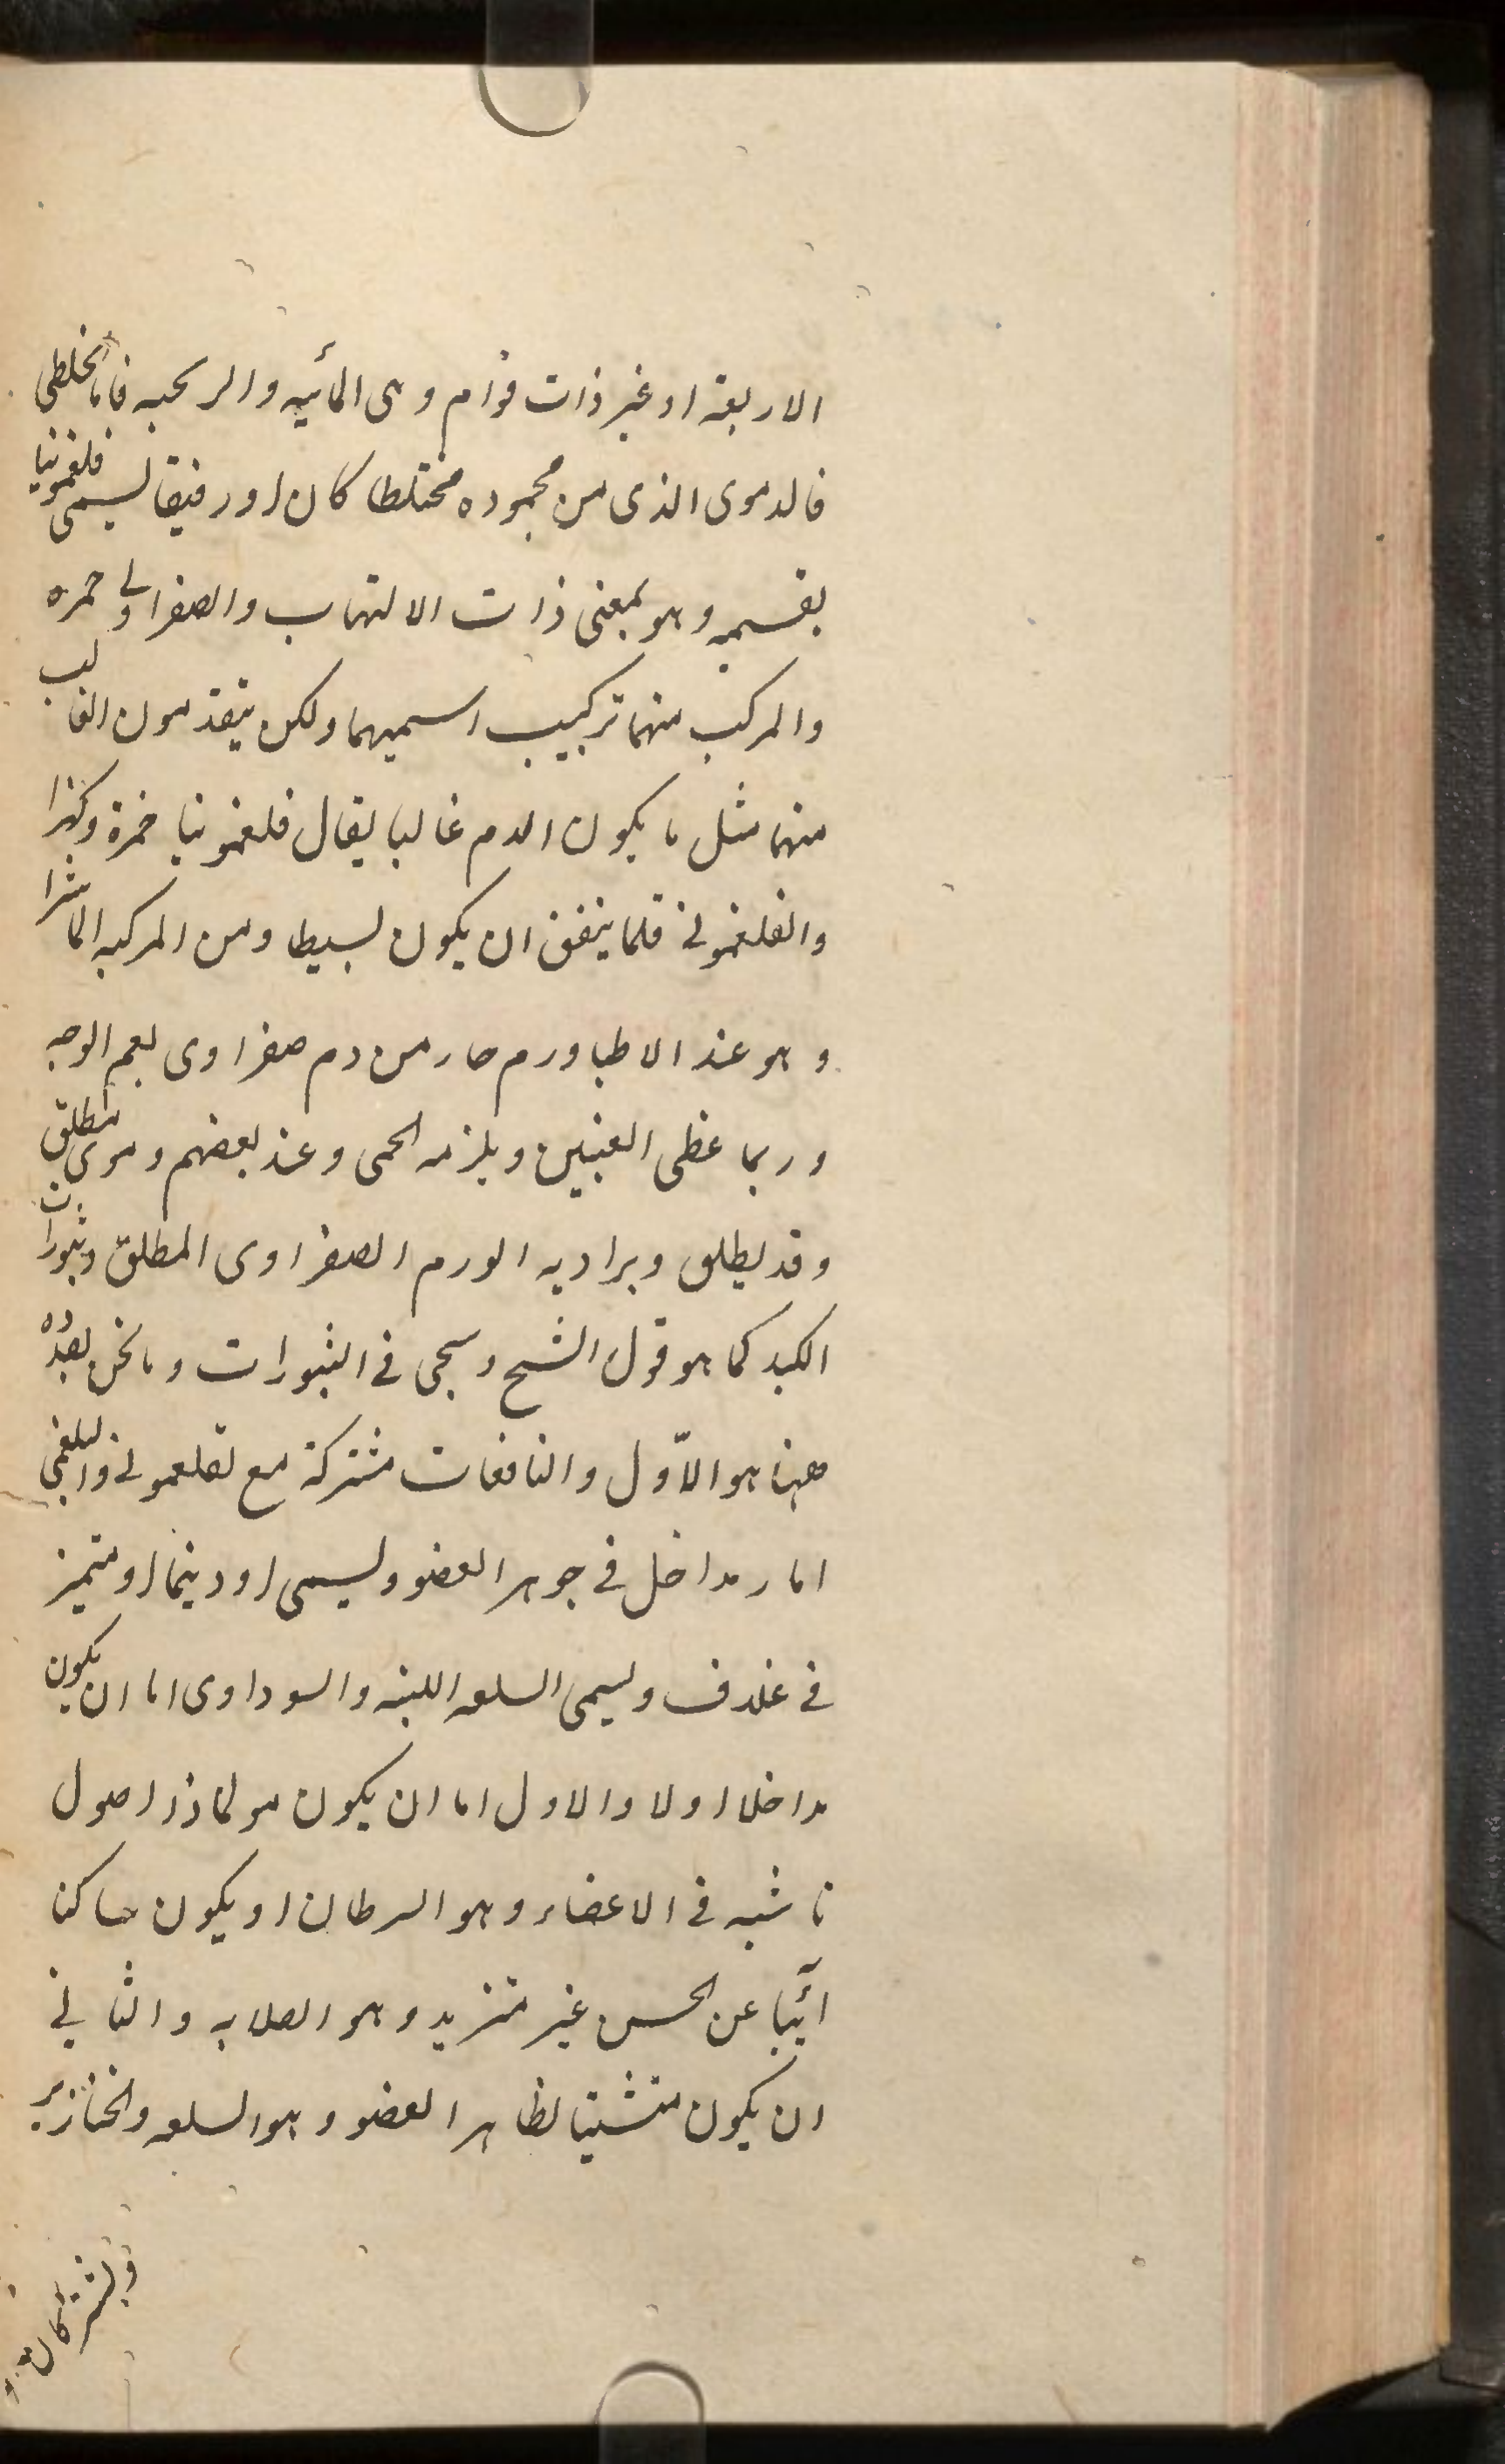 الاربعة او غير ذات قوام وهى المائيه والريحيه فاما الخلطى
فالدموى الذى من محموده مختلطا كان او رقيقا يسمى فلغمونيا
بقسميه وهو بمعنى ذات الالتهاب والصفراوى حمره
والمركب منهما تركيب اسميهما ولكن يتقدمون الغالب
منهما مثل ما يكون الدم غالبا يقال فلغمونيا حمرة وكذا
والفلغمونى قلما يتفق ان يكون بسيطا ومن المركبه الماشرا
وهو عند الاطبا ورم حار من دم صفراوى يعم الوجه
وربما غطى العينين ويلزمه الحمى وعند بعضهم دموى مطلق
وقد يطلق ويراد به الورم الصفراوى المطلق وبثورات
الكبد كما هو قول الشيخ وسيجى فى البثورات وما نحن بعدده
ههنا هو الاّول والنافعات مشتركة مع لفلغمونى والبلغمى
اما ر مداخل فى جوهر العضو ويسمى اوديما او متميز
فى غلاف ويسمى السلعه اللينه والسوداوى اما ان يكون
مداخلا اولا والاول اما ان يكون مولما ذا اصول
ناشبه فى الاعضاء وهو السرطان او يكون ساكنا
آئبا عن الحس غير متزيد وهو الصلابه والثانى
ان يكون متشبثا لظاهر العضو وهو السلعه والخنازير